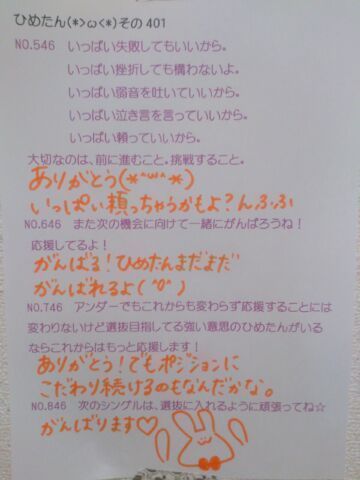 ひめたん(*>ω<*)その401
NO.546　いっぱい失敗してもいいから。
いっぱい挫折しても構わないよ。
いっぱい弱音を吐いていいから。
いっぱい泣き言を言っていいから。
いっぱい頼っていいから。
大切なのは、前に進むこと。挑戦すること。
ありがとう(*^ω^*)
いっぱい頼っちゃうかもよ？んふふ
NO.646　また次の機会に向けて一緒にがんばろうね！
応援してるよ！
がんばる！ひめたんまだまだ
がんばれるよ(^o^)
NO.746　アンダーでもこれからも変わらず応援することには
変わりないけど選抜目指してる強い意思のひめたんがいる
ならこれからはもっと応援します！
ありがとう！でもポジションに
こだわり続けるのもなんだかな。
NO.846　次のシングルは、選抜に入れるように頑張ってね☆
がんばります♡